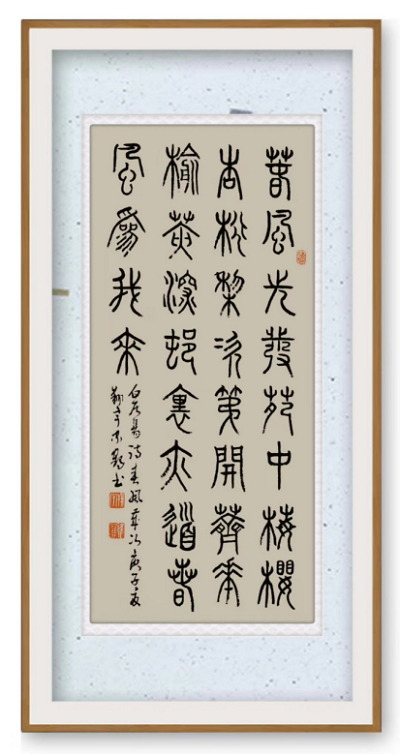 春風先發苑中梅櫻
杏桃棃次第開薺花
榆莢深邨裏亦道春
風爲我來
白居易詩春風庚子夏
書